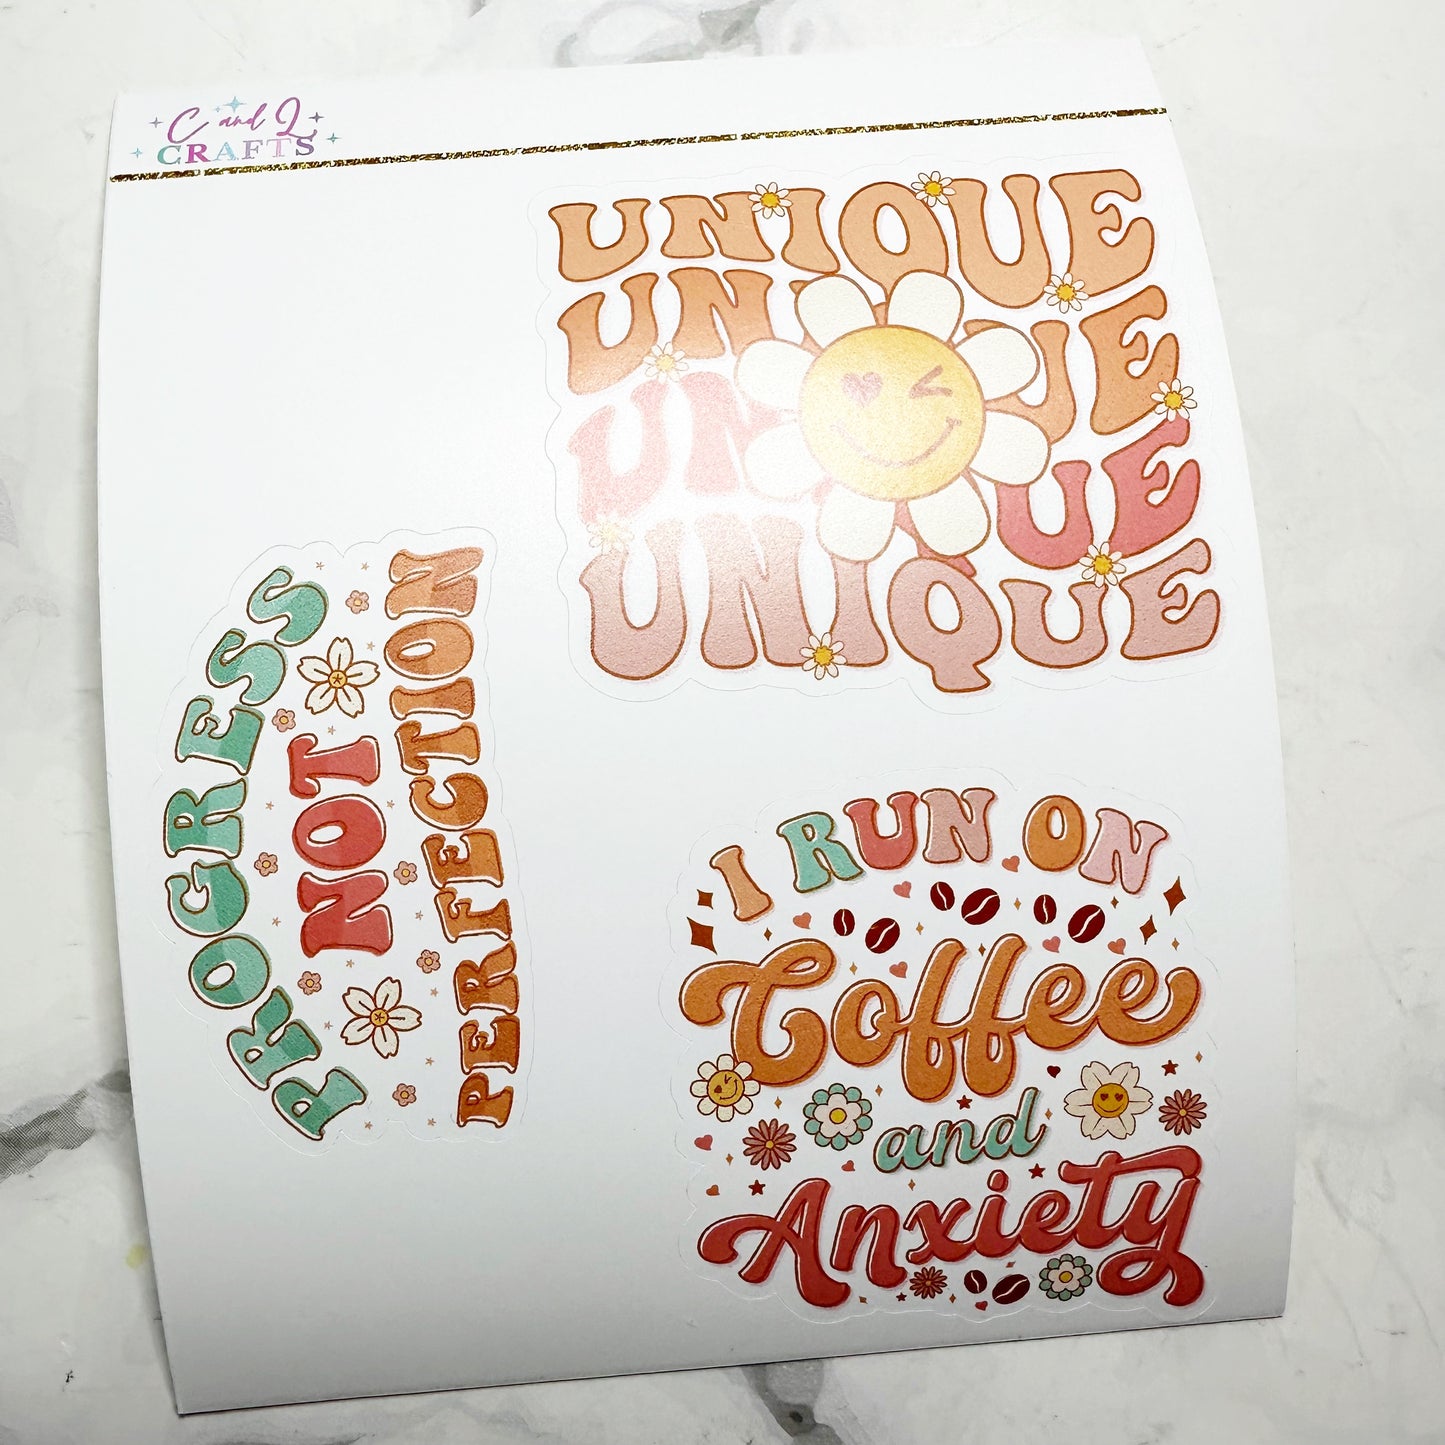 C and L
CRAFTS
UNIQUE
UNIQUE
UNIQUE
UNIQUE
PROGRESS
NOT
PERFECTION
I RUN ON
Coffee
and
Anxiety